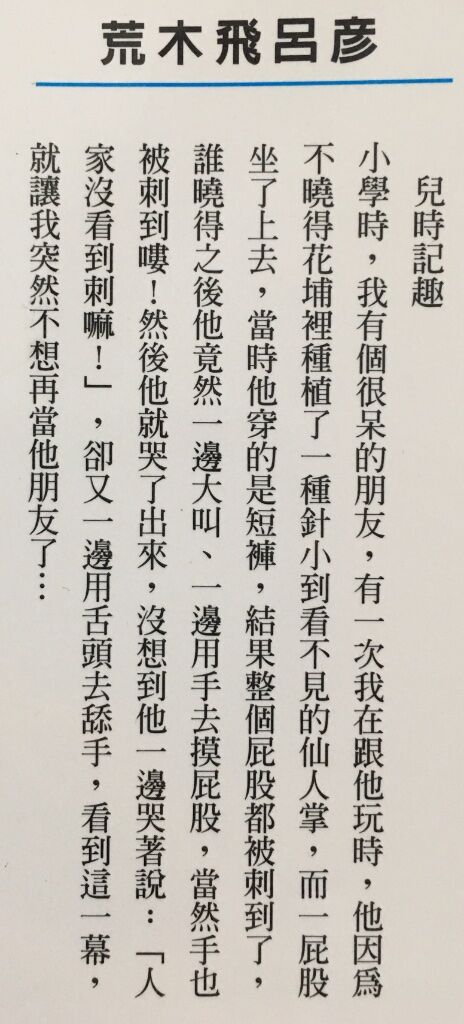 荒木飛呂彦
兒時記趣
小學時，我有個很呆的朋友，有一次我在跟他玩時，他因爲
不曉得花埔裡種植了一種針小到看不見的仙人掌，而一屁股
坐了上去，當時他穿的是短褲，結果整個屁股都被刺到了，
誰曉得之後他竟然一邊大叫、一邊用手去摸屁股，當然手也
被刺到嘍！然後他就哭了出來，沒想到他一邊哭著說：「人
家沒看到刺嘛！」，卻又一邊用舌頭去舔手，看到這一幕，
就讓我突然不想再當他朋友了…